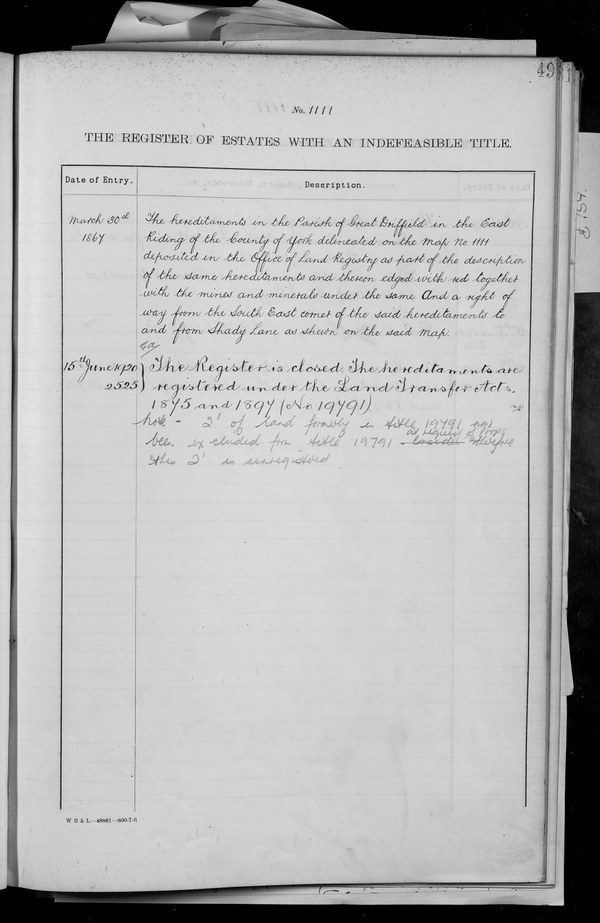 49
No. 1111
THE REGISTER OF ESTATES WITH AN INDEFEASIBLE TITLE.
Date of Entry.
Description.
March 30th
1867
The hereditaments in the Parish of Great Driffield in the East
Riding of the County of York delineated on the Map No 1111
deposited in the Office of Land Registry as part of the description
of the same hereditaments and thereon edged with red together
with the mines and minerals under the same And a right of
way from the South East corner of the said hereditaments to
and from Shady Lane as shewn on the said Map.
15th June 1920
2525
The Register is closed. The hereditaments are
registered under the Land Transfer Acts.
1875 and 1897 (No 19791)
Note - 2' of land formerly in title 19791 has
at request of
been excluded from title 19791 therefore
this 2' is unregistered
W B & L—48881—800-7-6